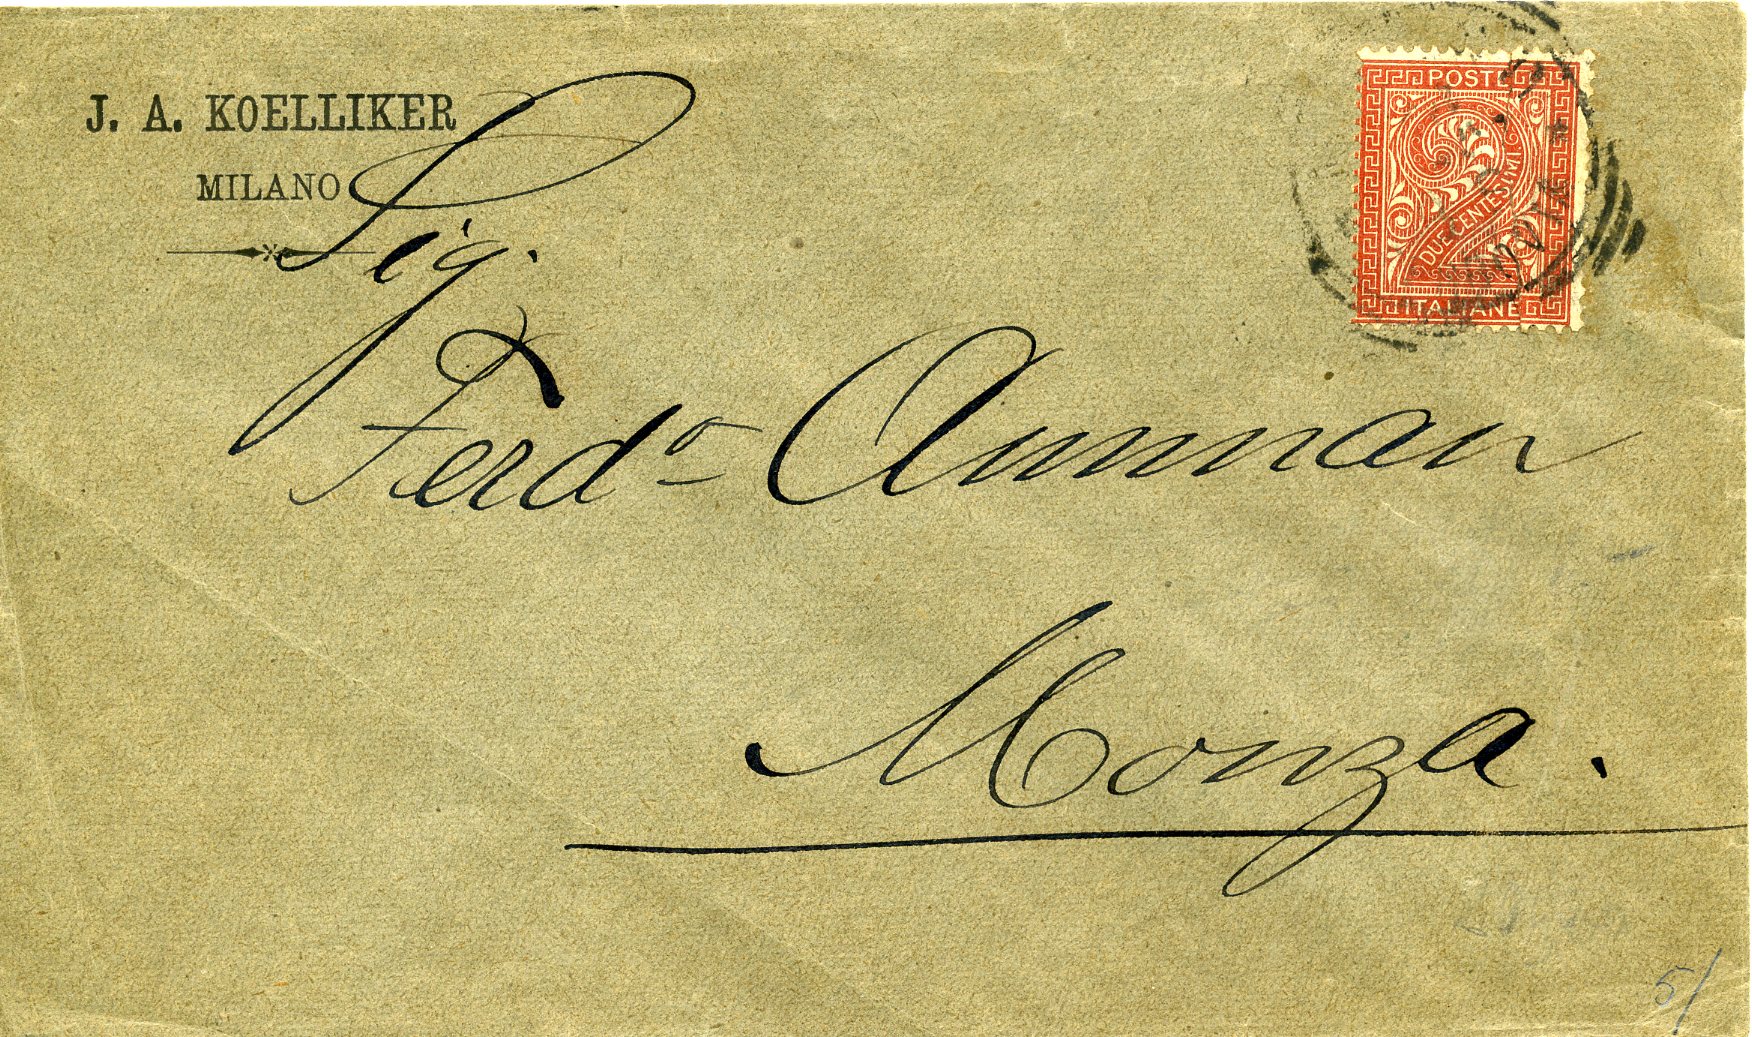 J. A. KOELLIKER
MILANO
POSTE
DUE CENTESIMI
ITALIANE
Sig.
Ferd.o Amman
Monza.
5/